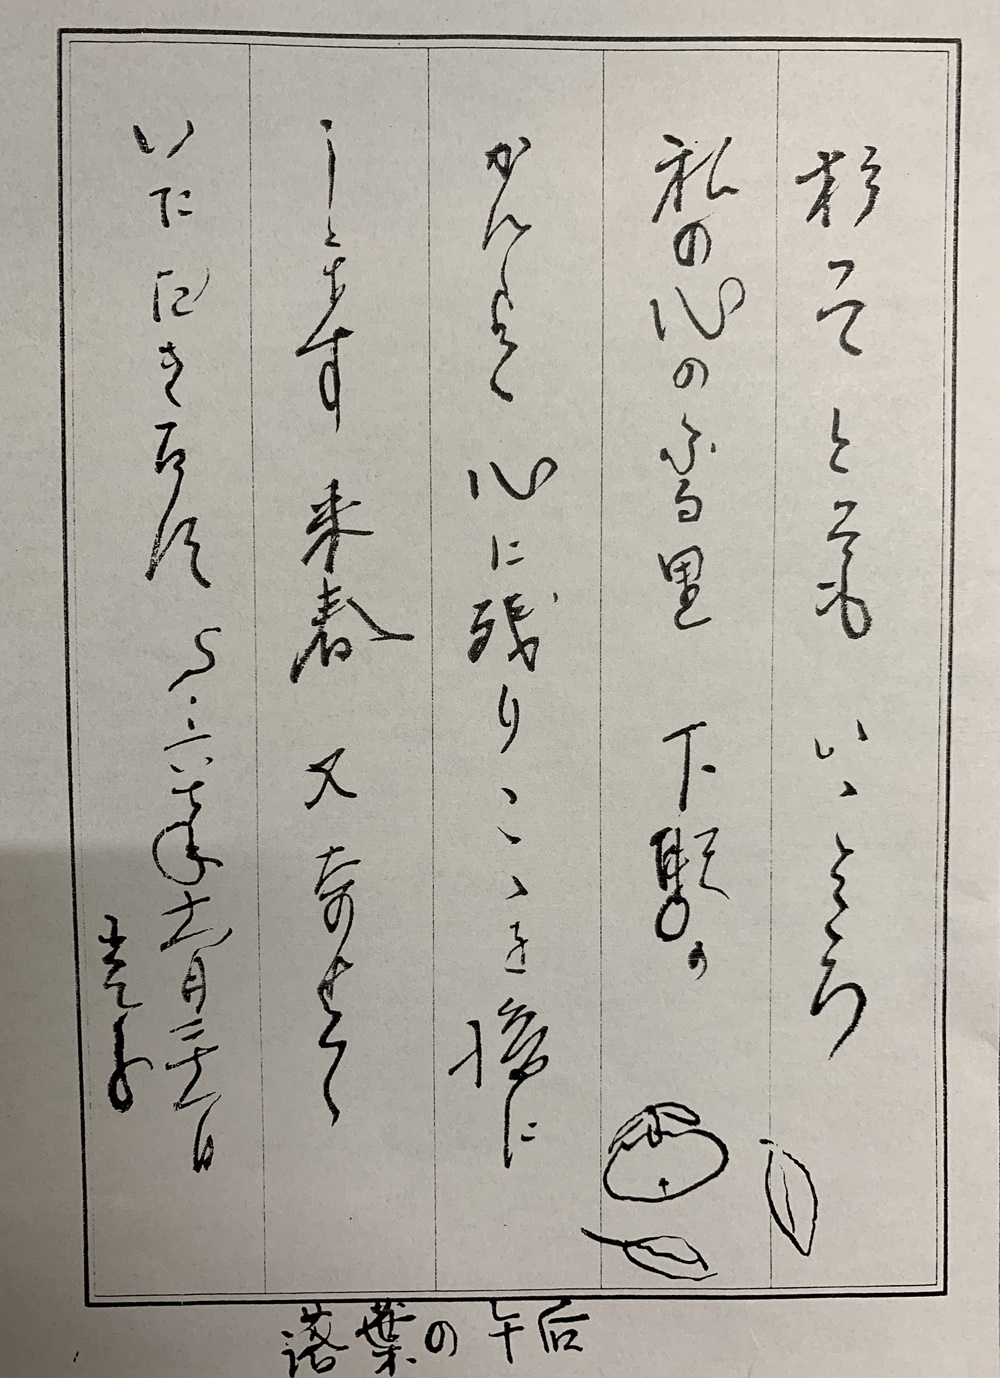 杉 とても いゝところ
私の心のふる里 下駄の
かんしょく 心に残り こゝを後に
します 来春 又寄せて
いただき度く S.六十年十一月二十一日
落葉の午后